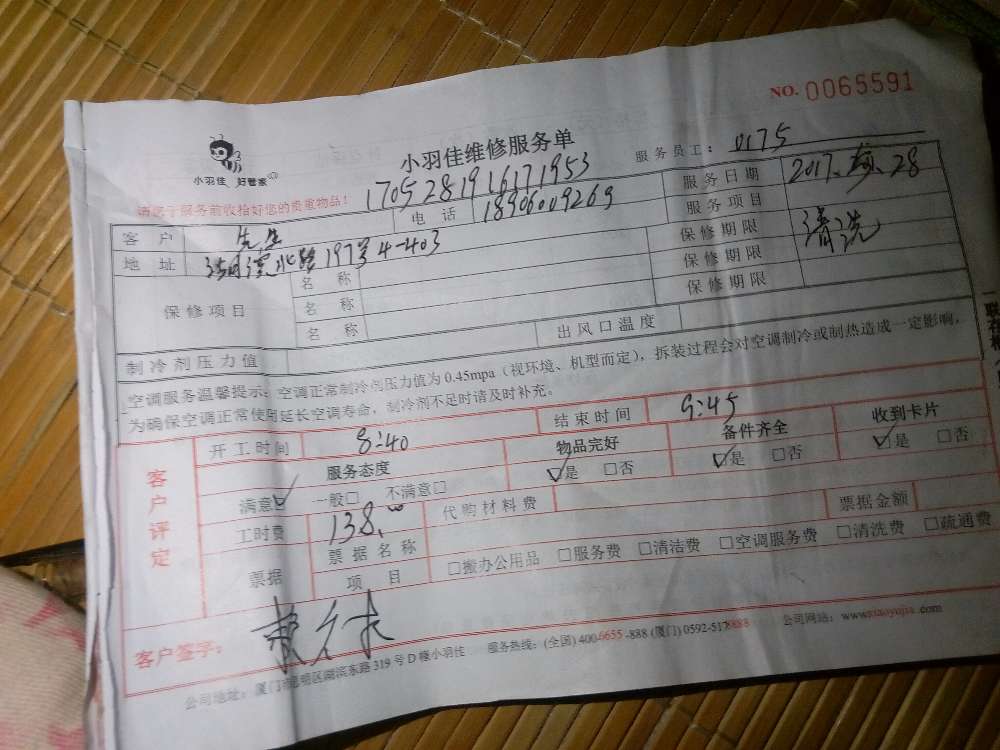 NO. 0065591
小羽佳 好管家
小羽佳维修服务单
服务员工: 0175
请您于服务前收拾好您的贵重物品!
1705281916171953
客户 先生 电话 18906009269 服务日期 2017. .28
地址 湖滨北路197号4-403 服务项目 清洗
保修项目 名称 保修期限
名称 保修期限
名称 保修期限
制冷剂压力值 出风口温度
空调服务温馨提示:空调正常制冷剂压力值为0.45mpa(视环境、机型而定),拆装过程会对空调制冷或制热造成一定影响,
为确保空调正常使用延长空调寿命,制冷剂不足时请及时补充。
客户评定
开工时间 8:40 结束时间 9:45
服务态度 物品完好 备件齐全 收到卡片
满意☑ 一般□ 不满意□ ☑是 □否 ☑是 □否 ☑是 □否
工时费 138. 代购材料费 票据金额
票据 票据名称
项目 □搬办公用品 □服务费 □清洁费 □空调服务费 □清洗费 □疏通费
客户签字:
公司地址:厦门市思明区湖滨东路319号D幢小羽佳 服务热线:(全国)400-6655-888(厦门)0592-5178888 公司网站:www.xiaoyujia.com